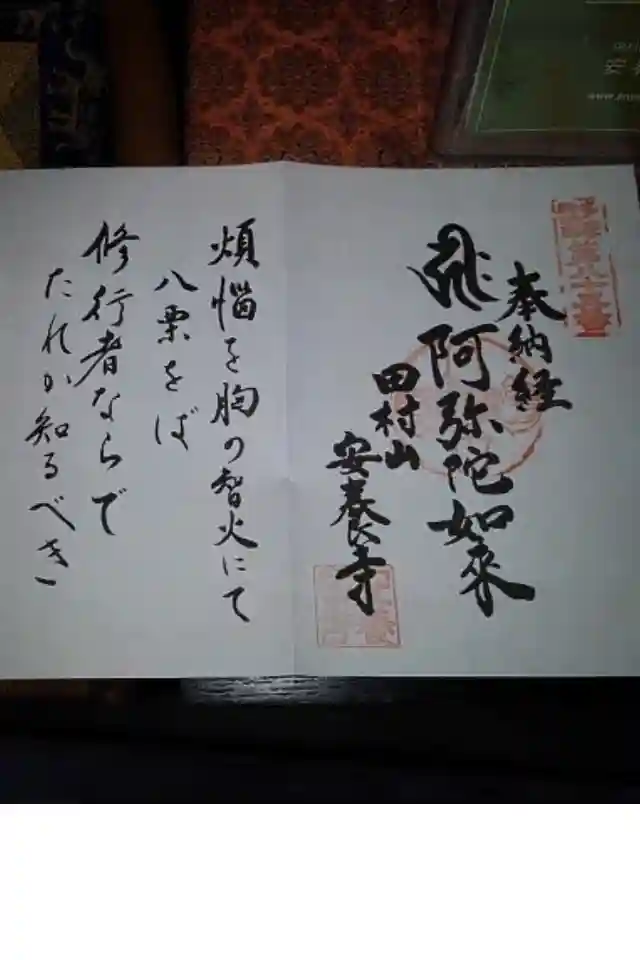 奉納経
阿弥陀如来
田村山
安養寺
煩悩を胸の智火にて
八栗をば
修行者ならで
たれか知るべき
安
www.